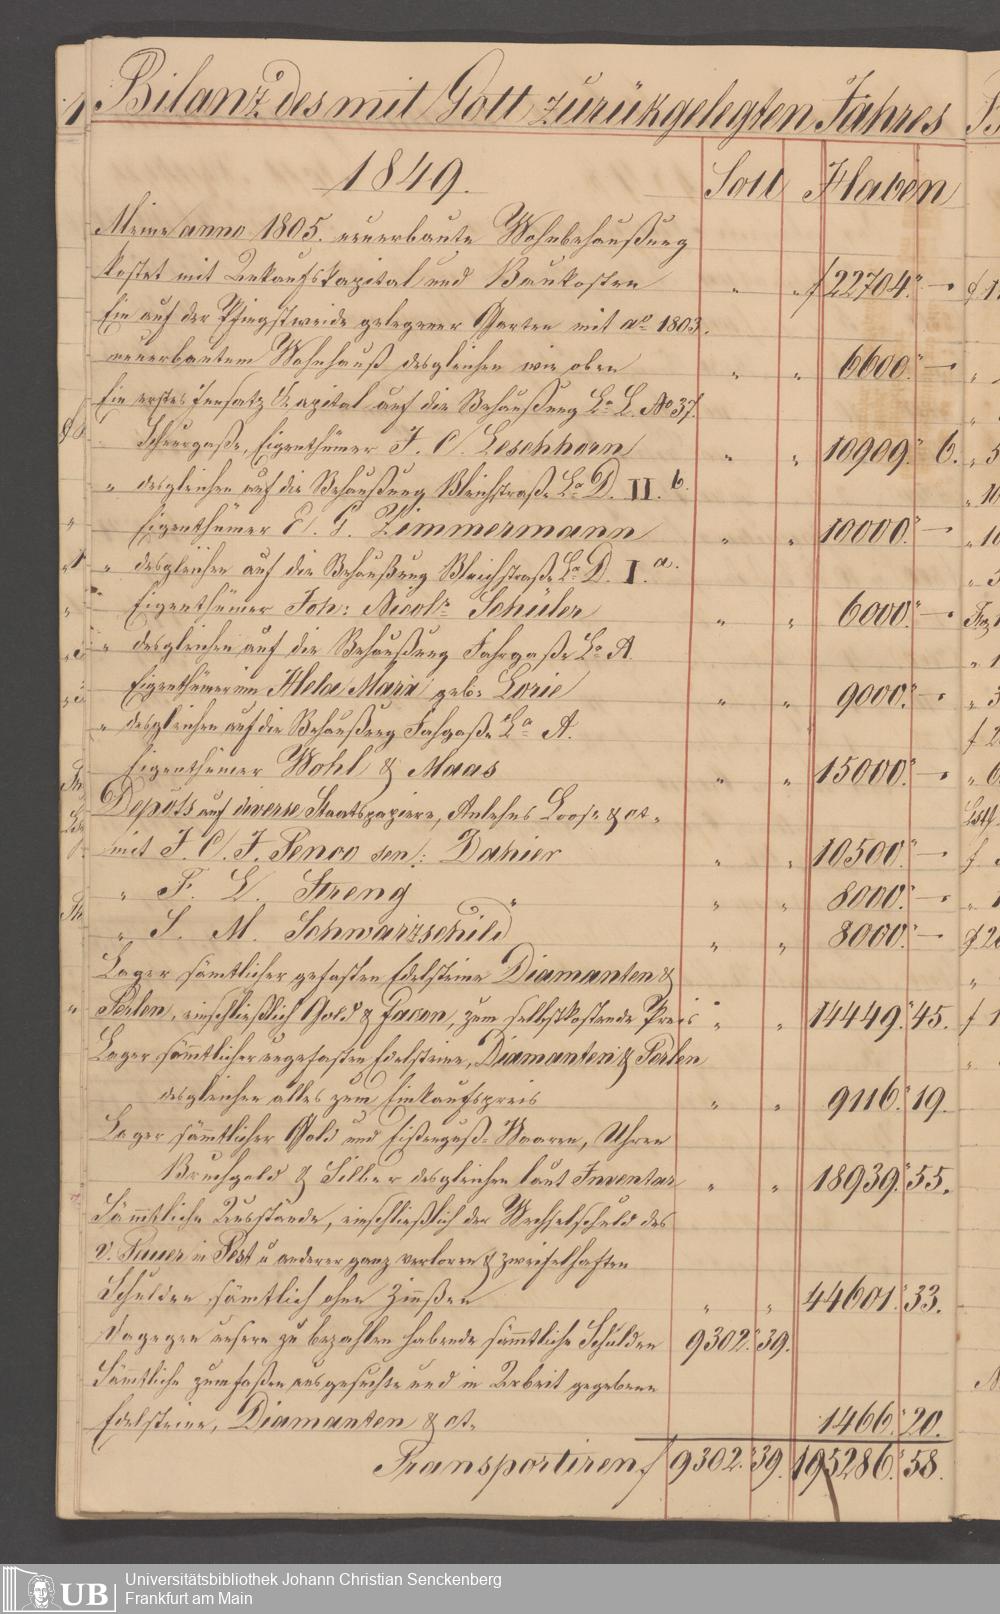 Bilanz des mit Gott zurükgelegten Jahres
1849. Soll Haben
Meine anno 1805. neuerbaute Wohnbehaußung
kostet mit Ankaufskapital und Baukosten " " f 22704." —
Ein auf der Pfingstweide gelegener Garten mit ao 1803.
neuerbautem Wohnhauß desgleichen wie oben " " 6600." —
Ein erstes Insatz Kapital auf die Behaußung La L. No 37.
Schnurgaße, Eigenthümer J. C. Leschhorn " " 10909." 6.
" desgleichen auf die Behaußung Bleichstraße La D. II. b.
Eigenthümer E. G. Zimmermann " " 10000." —
" desgleichen auf die Behaußung Bleichstraße La D. I. a.
Eigenthümer Joh: Nicols Schüler " " 6000." —
" desgleichen auf die Behaußung Fahrgaße La A
Eigenthümerinn Hela Maria geb: Lorie " " 9000." —
" desgleichen auf die Behaußung Fahgaße La A.
Eigenthümer Wohl & Maas " " 15000." —
Depots auf diverse Staatspapiere, Anlehns Loose & ct.
mit J. C. J. Senco sen: Dahier " " 10500." —
" F. L. Streng " " " 8000." —
" S. M. Schwarzschild " " 8000." —
Lager sämtlicher gefasten Edelsteine Diamanten &
Perlen, einschließlich Gold & Facon, zum selbstkostende Preis " " 14449." 45.
Lager sämmtlicher ungefasten Edelsteine, Diamanten & Perlen
desgleichen alles zum Einkaufspreis " " 9116." 19.
Lager sämmtlicher Gold und Eißenguß-Waaren, Uhren
Bruchgold & Silber desgleichen laut Inventar " " 18939." 55.
Sämmtliche Ausstände, einschließlich der Wechselschuld des
in Pest u anderer ganz verloren & zweifelhaften
Schulden sämtlich ohne Zinßen " " 44601." 33.
Dagegen unsere zu bezahlen habende sämmtliche Schulden 9302." 39.
Sämtliche zum faßen ausgesuchte und in Arbeit gegebene
Edelsteine, Diamanten & ct. 1466." 20.
Transportiren f 9302." 39. 195286." 58.
UB Universitätsbibliothek Johann Christian Senckenberg
Frankfurt am Main